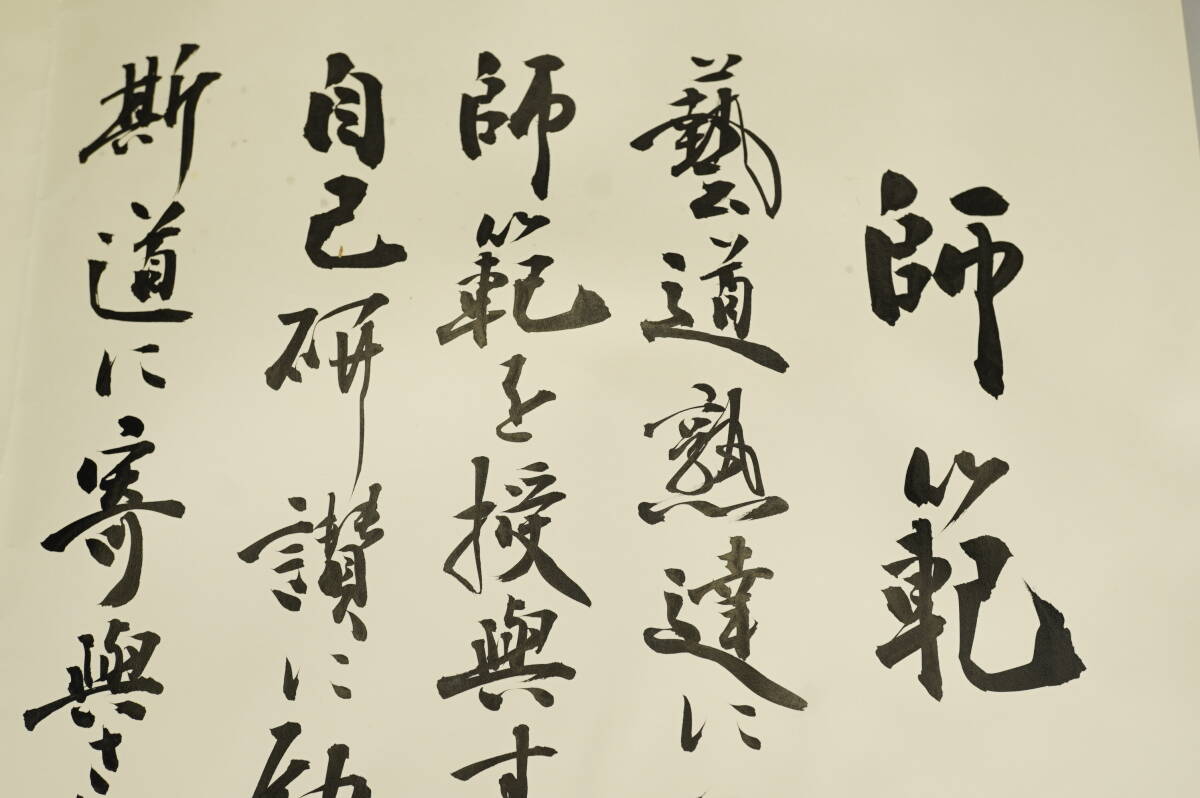 師範
藝道熟達に
師範を授與す
自己研讃に励
斯道に寄與さ